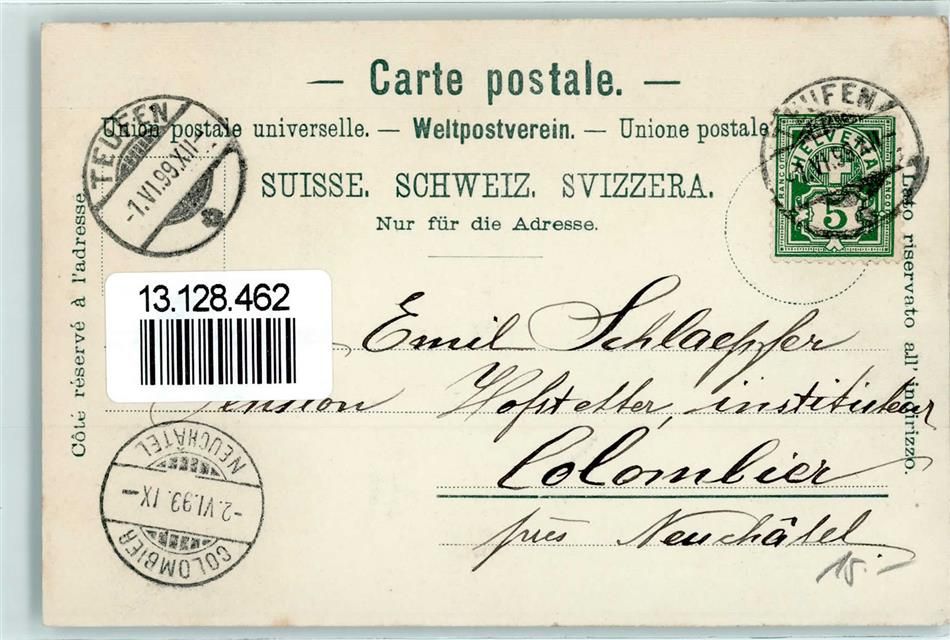 — Carte postale. —
Union postale universelle. — Weltpostverein. — Unione postale
SUISSE. SCHWEIZ. SVIZZERA.
Nur für die Adresse.
Côté réservé à l'adresse
Lato riservato all' indirizzo.
TEUFEN
-1.VI.99.XII-
TEUFEN
VI.99
FRANCO
HELVETIA
FRANCO
5
13.128.462
Emil Schlaepfer
Pension Hofstetter, instituteur
Colombier
près Neuchâtel
NEUCHÂTEL
-2.VI.99. IX-
COLOMBIER
15.-